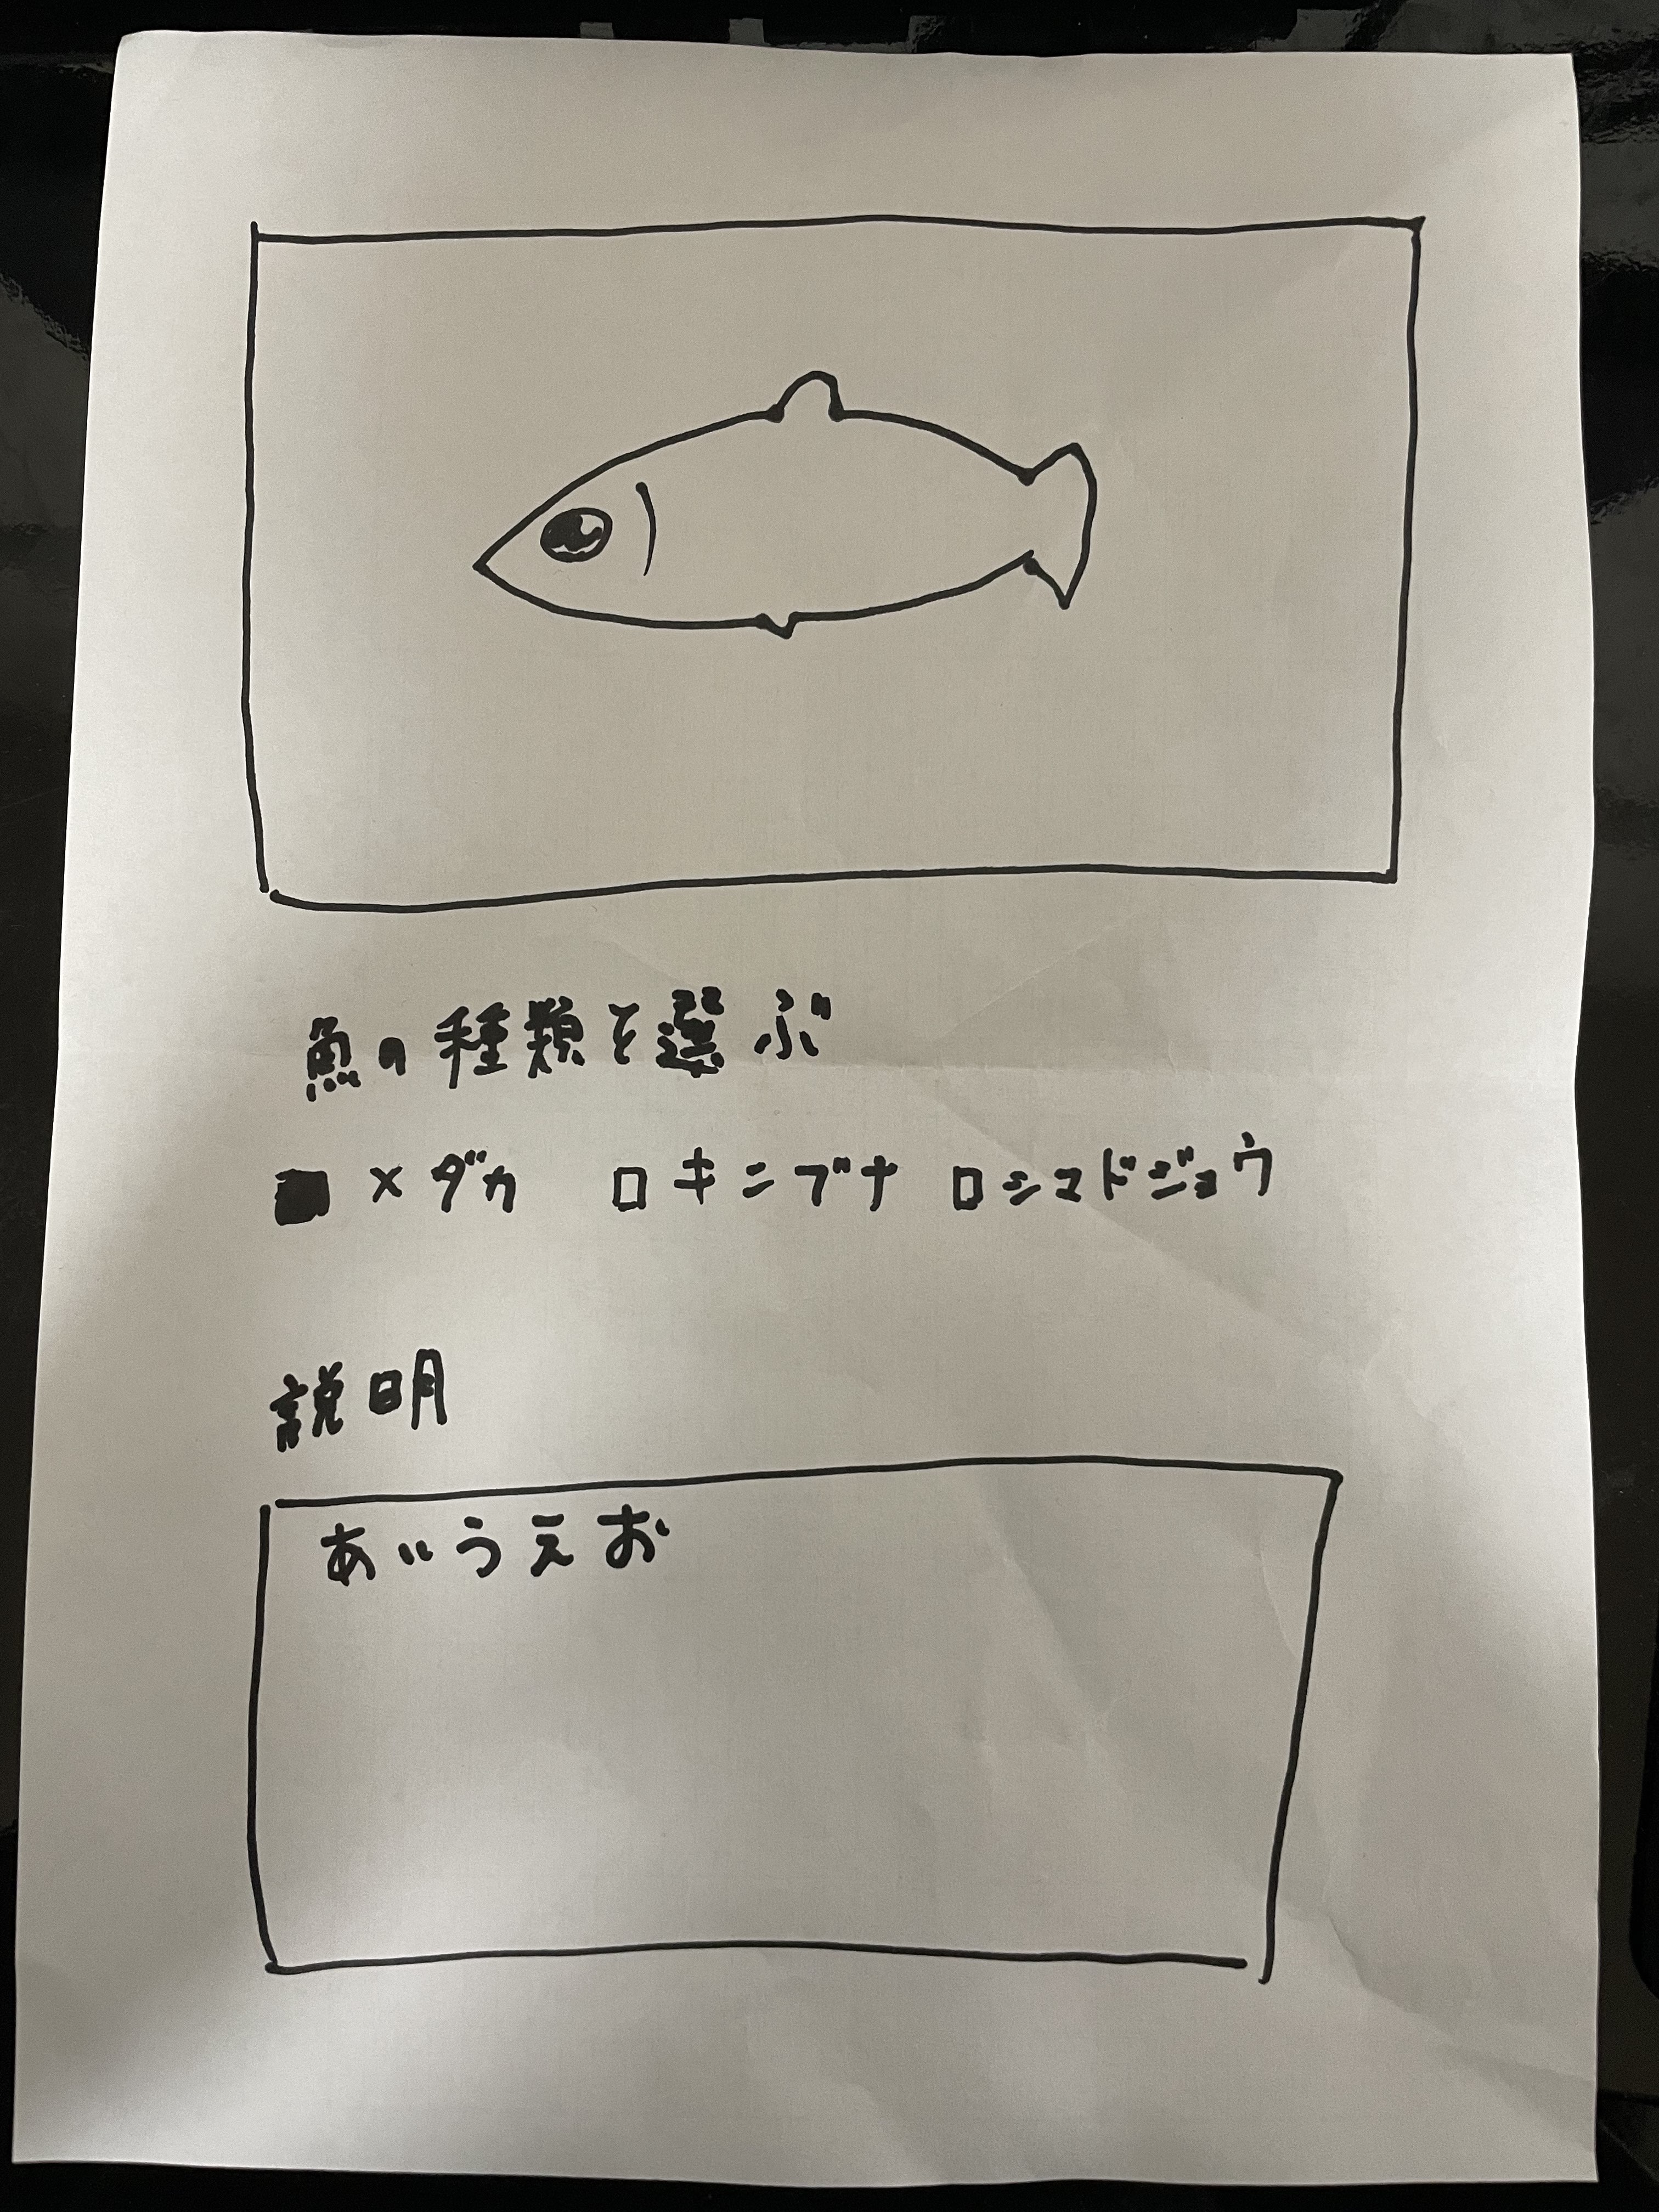 魚の種類を選ぶ
■ メダカ □ キンブナ □ シマドジョウ
説明
あいうえお